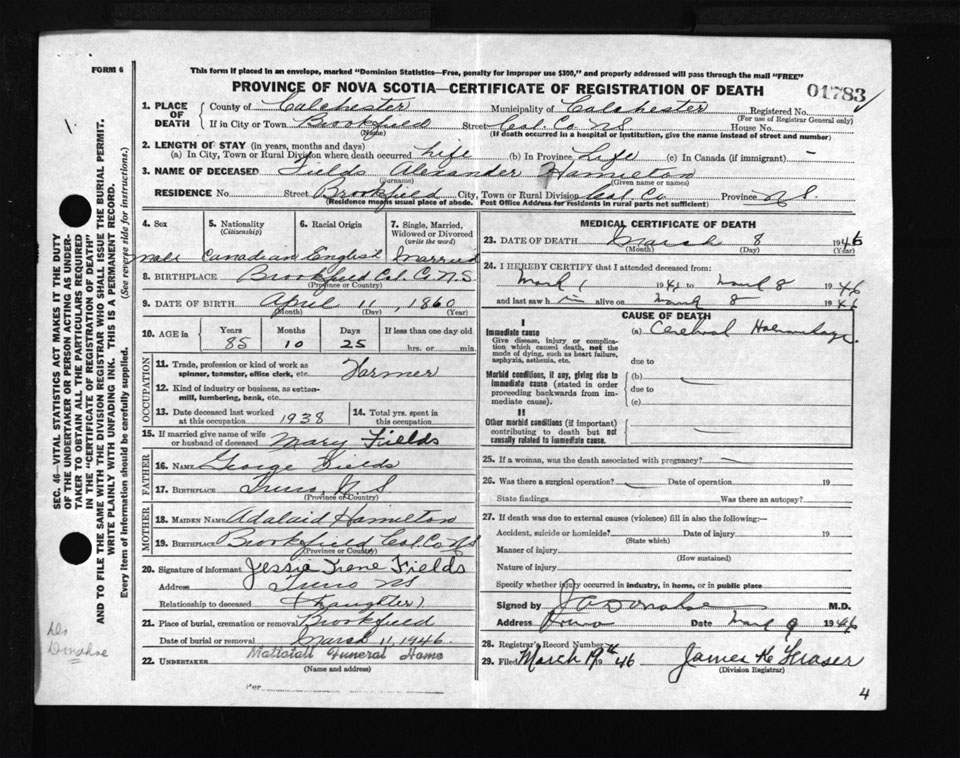 FORM 6
This form if placed in an envelope, marked "Dominion Statistics—Free, penalty for improper use $300," and properly addressed will pass through the mail "FREE"
PROVINCE OF NOVA SCOTIA—CERTIFICATE OF REGISTRATION OF DEATH
01783
1. PLACE OF DEATH County of Colchester Municipality of Colchester Registered No.
(For use of Registrar General only)
If in City or Town Brookfield Street Col. Co NS House No.
(Name) (If death occurred in a hospital or institution, give the name instead of street and number)
2. LENGTH OF STAY (in years, months and days)
(a) In City, Town or Rural Division where death occurred Life (b) In Province Life (c) In Canada (if immigrant) —
3. NAME OF DECEASED Fields Alexander Hamilton
(Surname) (Given name or names)
RESIDENCE No. Street Brookfield City, Town or Rural Division Col. Co. Province N.S.
(Residence means usual place of abode. Post Office Address for residents in rural parts not sufficient)
4. Sex Male
5. Nationality (Citizenship) Canadian
6. Racial Origin English
7. Single, Married, Widowed or Divorced (write the word) Married
8. BIRTHPLACE Brookfield Col. Co N.S
(Province or Country)
9. DATE OF BIRTH April 11, 1860
(Month) (Day) (Year)
10. AGE in Years Months Days If less than one day old
85 10 25 hrs. or min.
OCCUPATION
11. Trade, profession or kind of work as spinner, teamster, office clerk, etc. Farmer
12. Kind of industry or business, as cotton-mill, lumbering, bank, etc.
13. Date deceased last worked at this occupation 1938
14. Total yrs. spent in this occupation
15. If married give name of wife or husband of deceased Mary Fields
FATHER
16. NAME George Fields
17. BIRTHPLACE Truro, N.S
(Province or Country)
MOTHER
18. MAIDEN NAME Adalaid Hamilton
19. BIRTHPLACE Brookfield Col. Co NS
(Province or Country)
20. Signature of informant Jessie Irene Fields
Address Truro NS
Relationship to deceased (Daughter)
21. Place of burial, cremation or removal Brookfield
Date of burial or removal March 11, 1946.
22. UNDERTAKER Mattatall Funeral Home
(Name and address)
Per
MEDICAL CERTIFICATE OF DEATH
23. DATE OF DEATH March 8 1946
(Month) (Day) (Year)
24. I HEREBY CERTIFY that I attended deceased from:
March 1 1946 to March 8 1946
and last saw h alive on March 8 1946
CAUSE OF DEATH
I
Immediate cause (a) Cerebral Haemorrhage
Give disease, injury or complication which caused death, not the mode of dying, such as heart failure, asphyxia, asthenia, etc.
due to
Morbid conditions, if any, giving rise to immediate cause (stated in order proceeding backwards from immediate cause).
(b)
due to
(c)
II
Other morbid conditions (if important) contributing to death but not causally related to immediate cause.
25. If a woman, was the death associated with pregnancy?
26. Was there a surgical operation? Date of operation 19
State findings Was there an autopsy?
27. If death was due to external causes (violence) fill in also the following:—
Accident, suicide or homicide? Date of injury 19
(State which)
Manner of injury
(How sustained)
Nature of injury
Specify whether injury occurred in industry, in home, or in public place
Signed by Donahoe M.D.
Address Truro Date March 9 1946
28. Registrar's Record Number
29. Filed March 19th 1946 James K Fraser
(Division Registrar)
4
SEC. 46—VITAL STATISTICS ACT MAKES IT THE DUTY
OF THE UNDERTAKER OR PERSON ACTING AS UNDER-
TAKER TO OBTAIN ALL THE PARTICULARS REQUIRED
IN THE "CERTIFICATE OF REGISTRATION OF DEATH"
AND TO FILE THE SAME WITH THE DIVISION REGISTRAR WHO SHALL ISSUE THE BURIAL PERMIT.
WRITE PLAINLY WITH UNFADING INK. THIS IS A PERMANENT RECORD.
Every item of information should be carefully supplied. (See reverse side for instructions.)
Donahoe